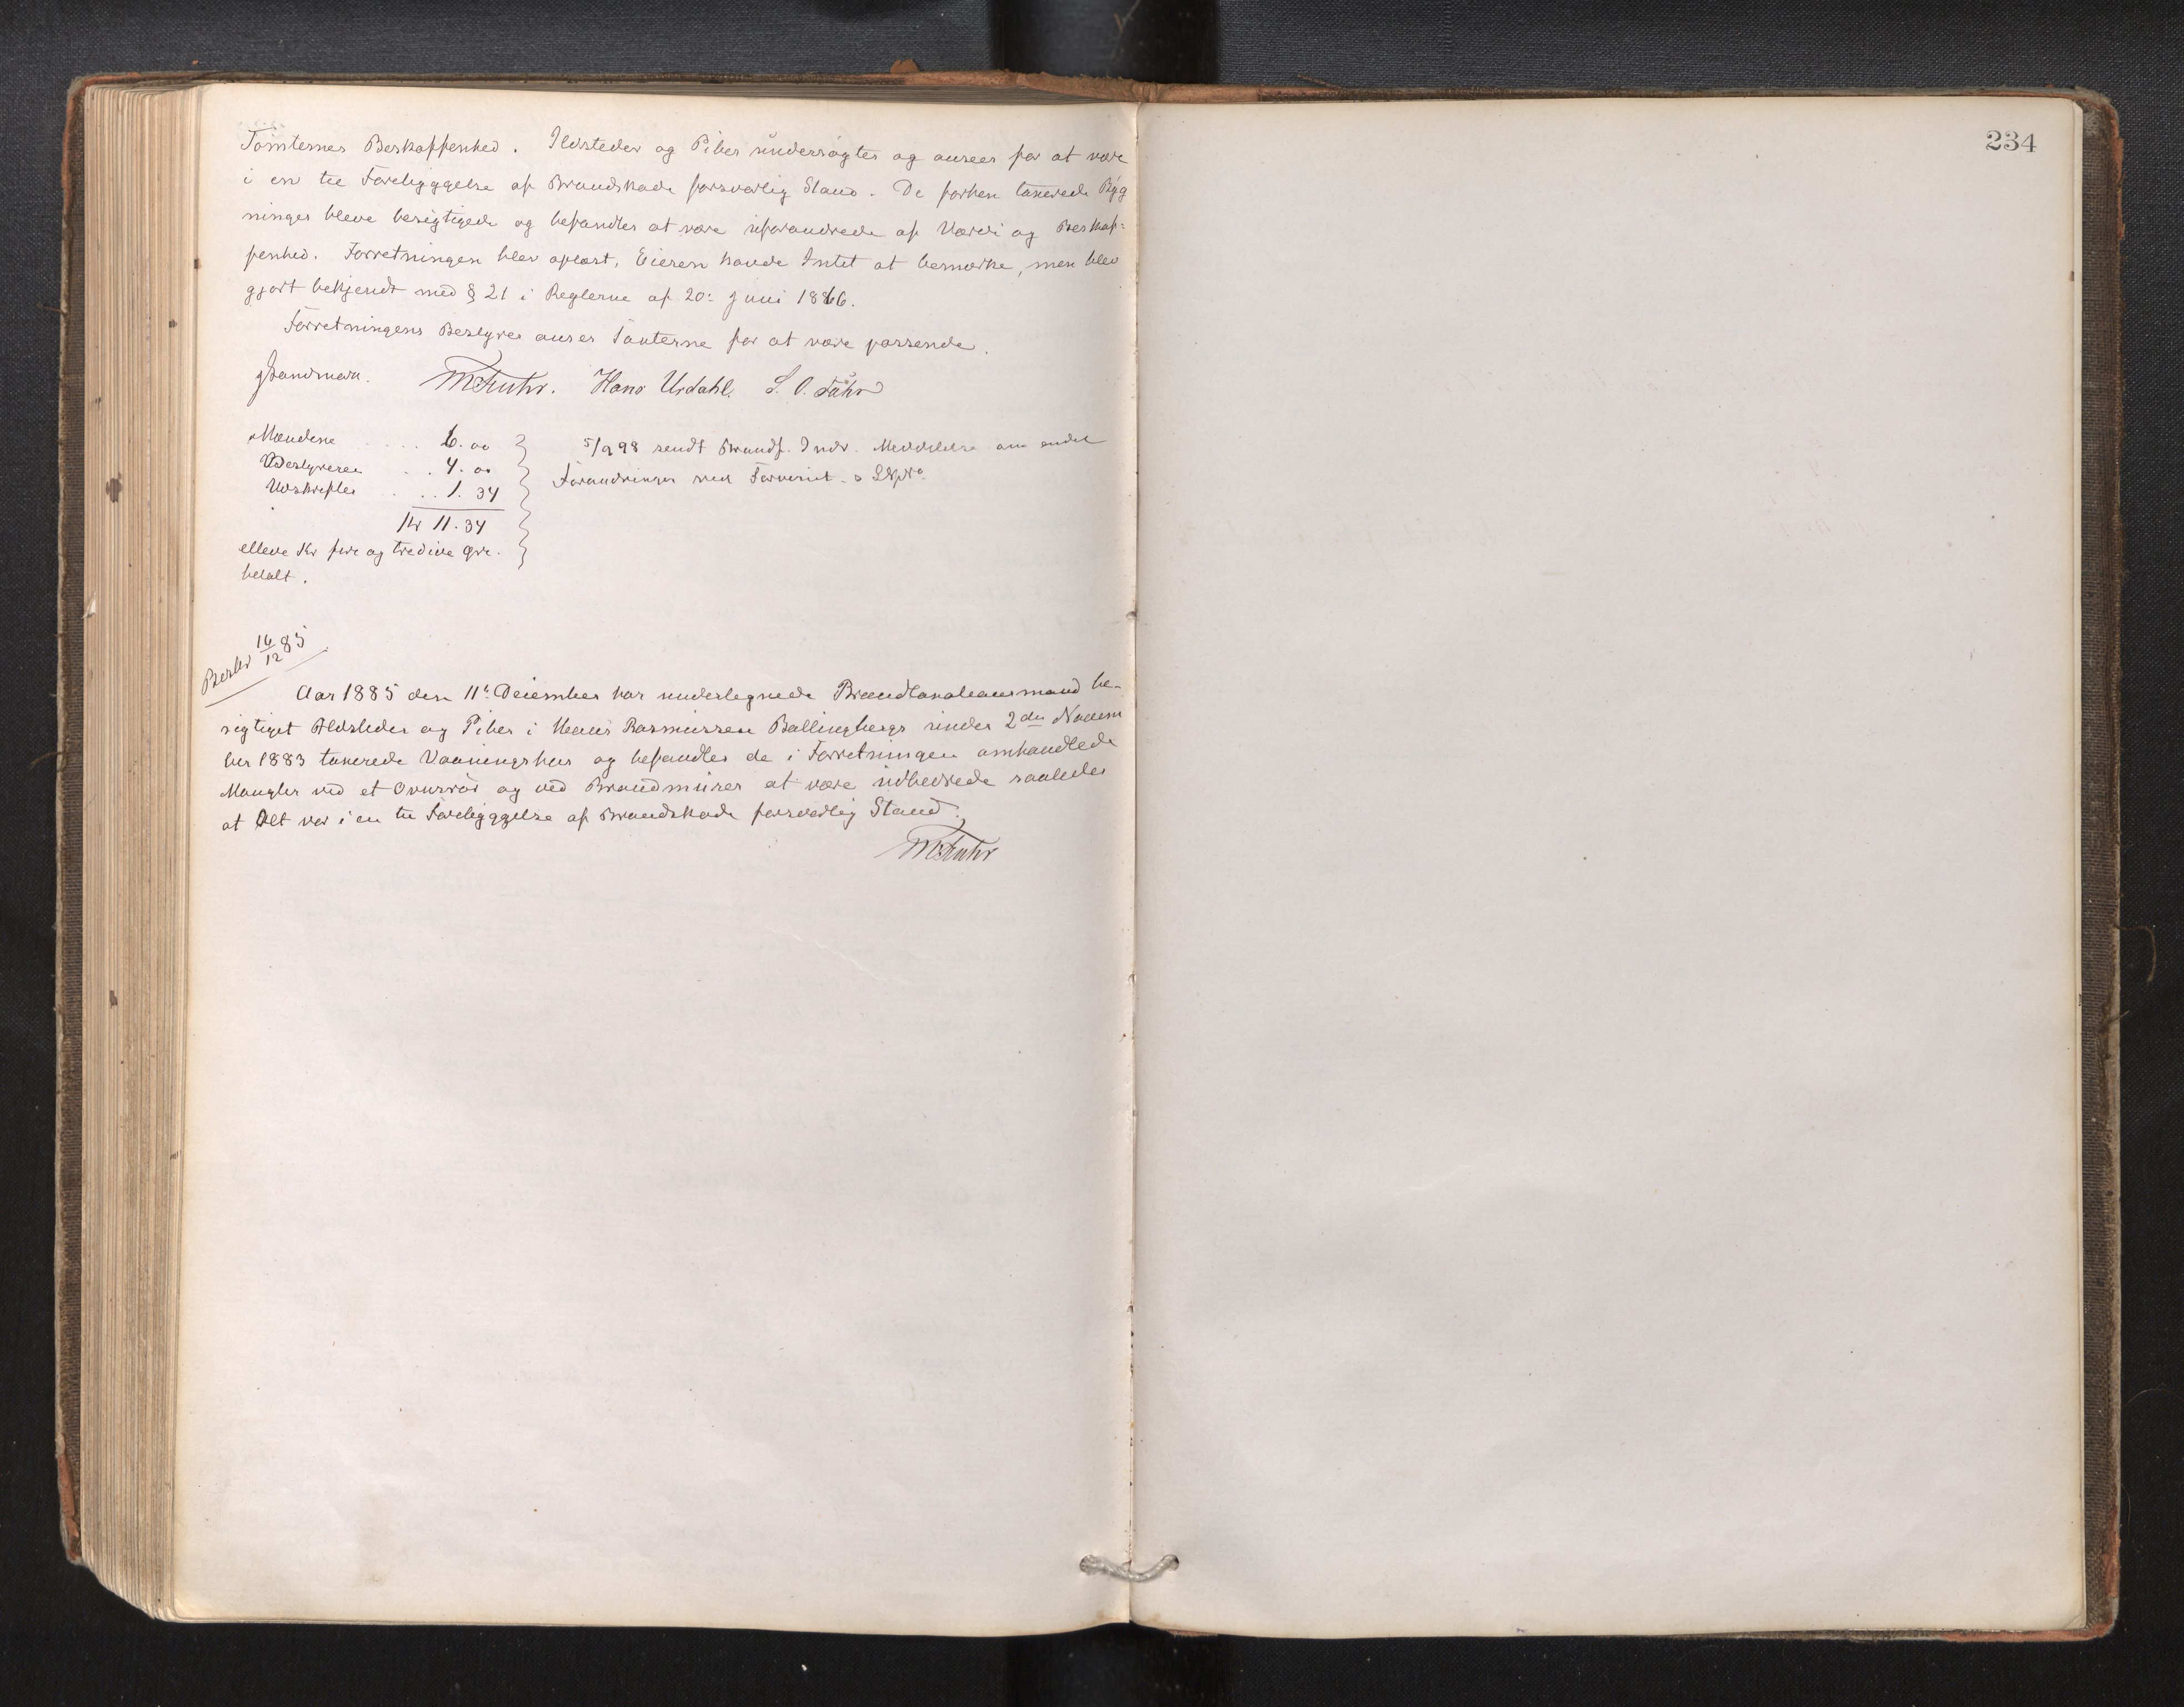 234
Tomternes Beskaffenhed. Ildsteder og Piber undersøgtes og ansees for at være
i en til Forebyggelse af Brandskade forsvarlig Stand. De forhen taxerede Byg
ninger bleve besigtigede og befandtes at være uforandrede af Værdi og Beskaf-
fenhed. Forretningen blev oplæst, Eieren havde Intet at bemærke, men blev
gjort bekjendt med § 21 i Reglerne af 20: Juni 1866.
Forretningens Bestyrer anser Taxterne for at være passende.
M Fuhr. Hans Urdahl. S. O. Fuhr
Mændene .... 6. 00
Bestyreren ... 4. 00
Udskrifter ... 1. 34
Kr 11. 34
elleve Kr fire og tredive Øre.
betalt.
5/9 98 sendt Brandf. Indr. Meddelelse om endel
Forandringer ved
16/12 85
Aar 1885 den 11: December har undertegnede Brandtaxationsmand be-
sigtiget Ildsteder og Piber i Rasmussen Ballingbergs under 2den Novem
ber 1883 taxerede Vaaningshus og befandtes de i Forretningen omhandlede
Mangler ved et Ovnsrør og ved Brandmurer at være udbedrede saaledes
at Alt var i en til Forebyggelse af Brandskade forsvarlig Stand.
M Fuhr